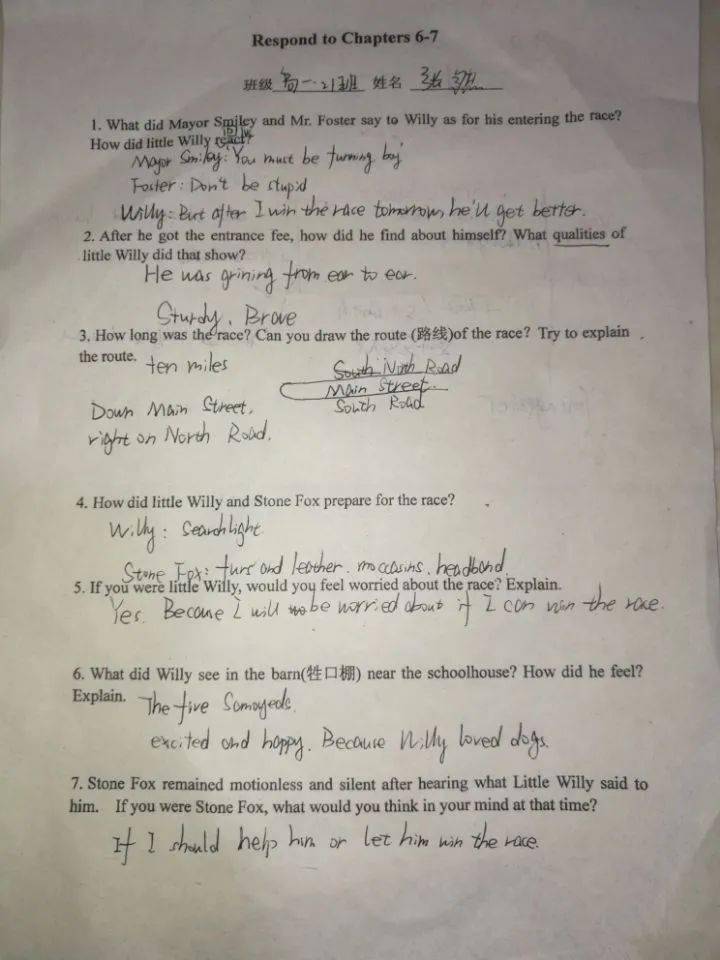 Respond to Chapters 6-7
班级 高一.21班 姓名
1. What did Mayor Smiley and Mr. Foster say to Willy as for his entering the race?
How did little Willy react?
Mayor Smiley: You must be turning boy
Foster: Don't be stupid
Willy: But after I win the race tomorrow, he'll get better.
2. After he got the entrance fee, how did he find about himself? What qualities of
little Willy did that show?
He was grining from ear to ear.
Sturdy, Brave
3. How long was the race? Can you draw the route (路线)of the race? Try to explain
the route. ten miles
South North Road
Main Street
South Road
Down Main Street,
right on North Road.
4. How did little Willy and Stone Fox prepare for the race?
Willy: Searchlight
Stone Fox: furs and leather. moccasins. headband
5. If you were little Willy, would you feel worried about the race? Explain.
Yes. Because I will be worried about if I can win the race.
6. What did Willy see in the barn(牲口棚) near the schoolhouse? How did he feel?
Explain. The five Samoyeds.
excited and happy. Because Willy loved dogs.
7. Stone Fox remained motionless and silent after hearing what Little Willy said to
him. If you were Stone Fox, what would you think in your mind at that time?
If I should help him or let him win the race.